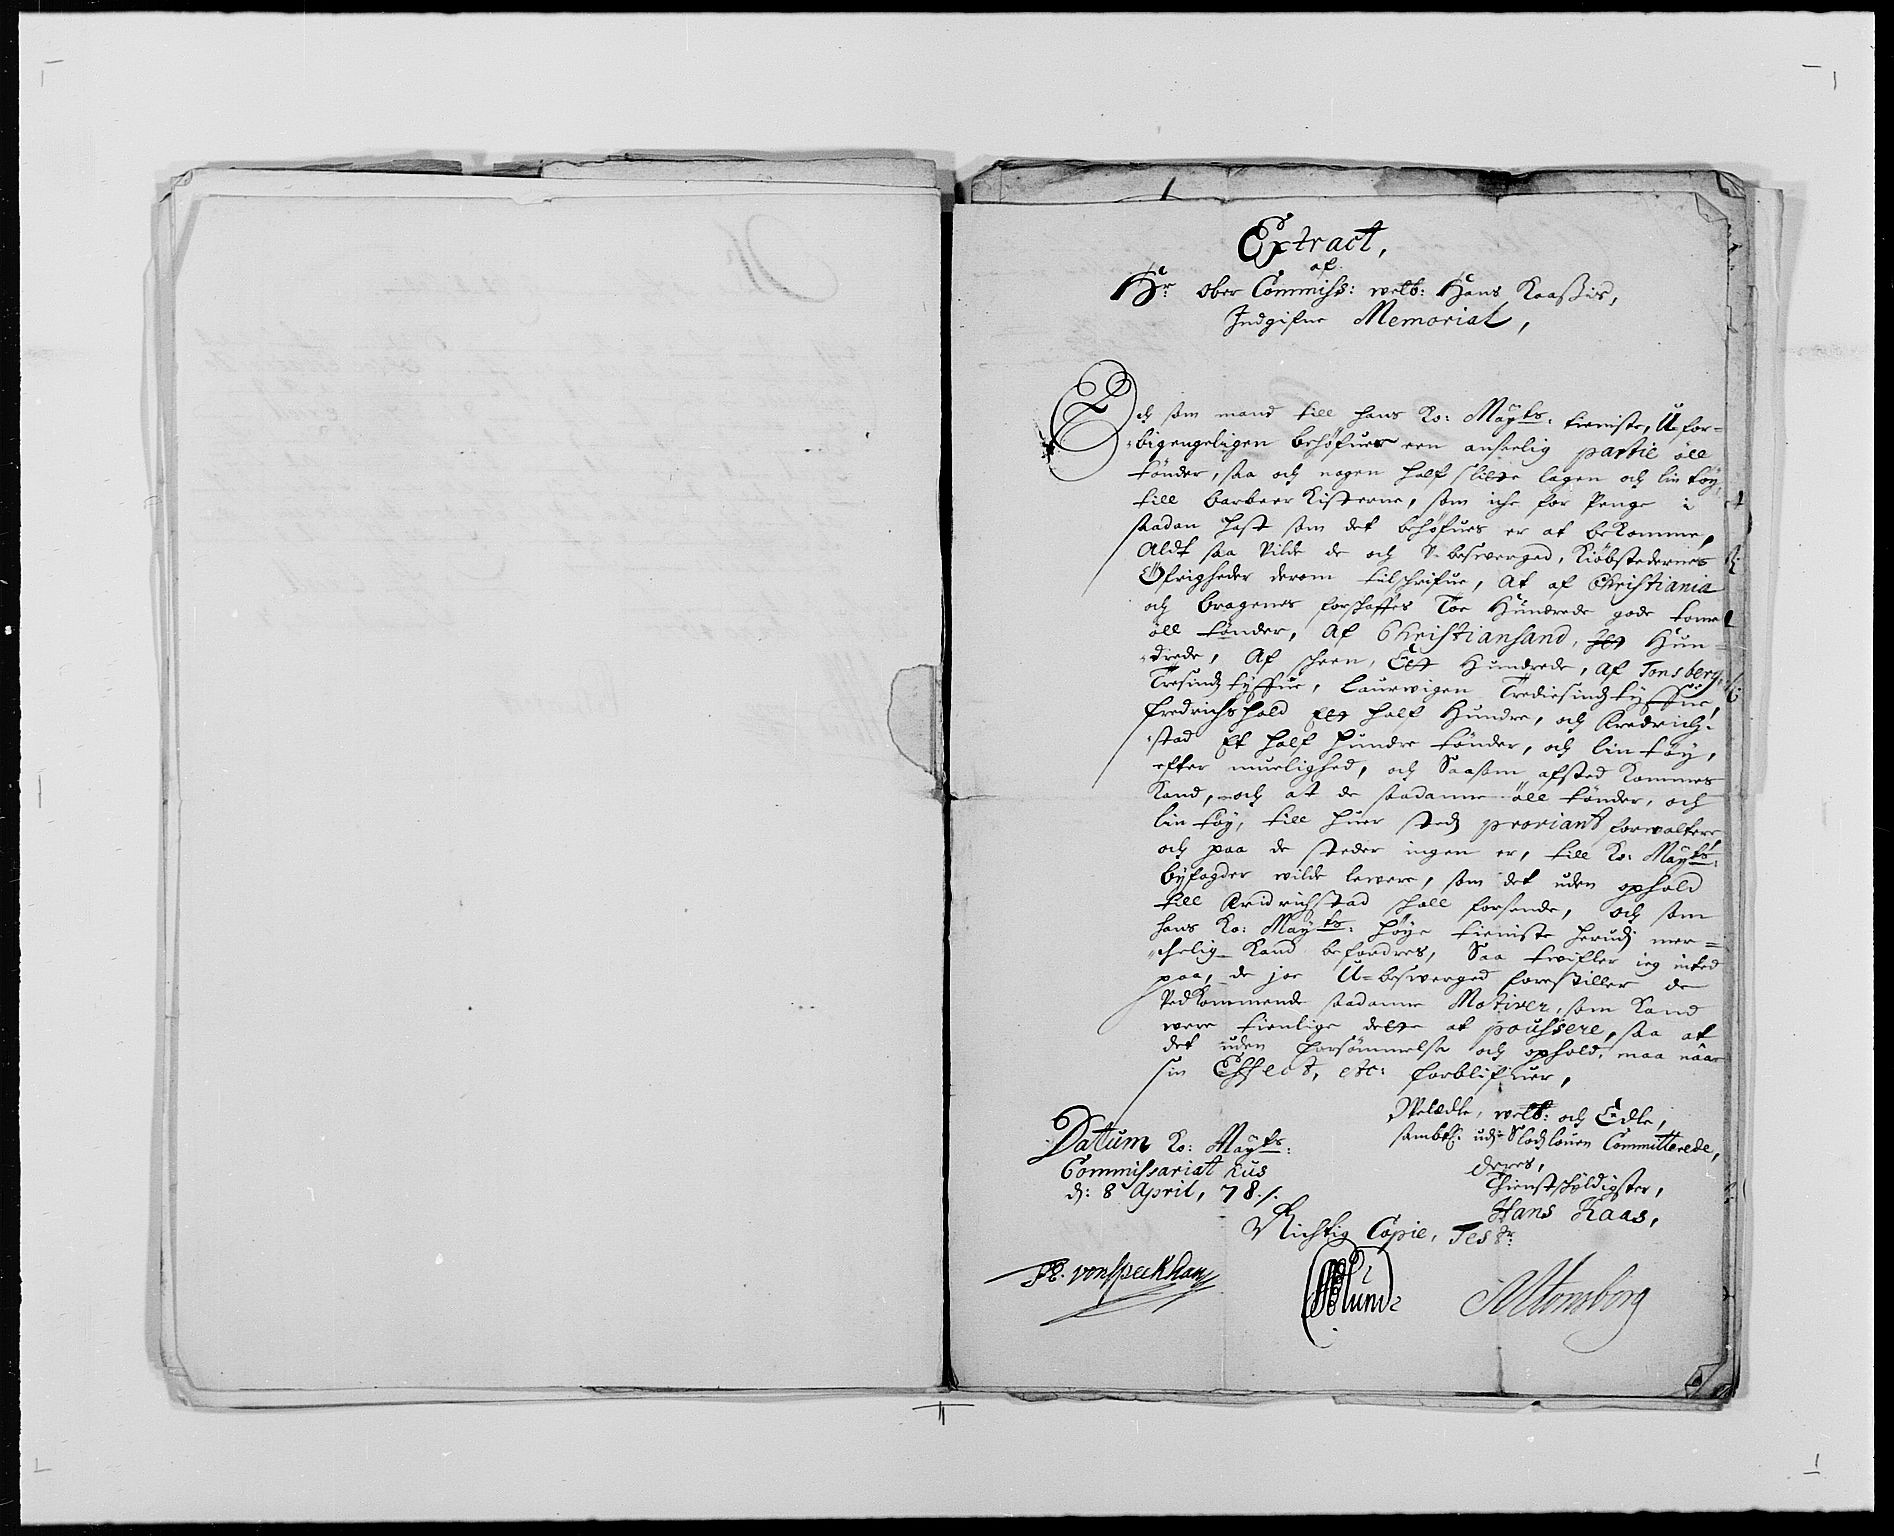 Extract,
af
Hr ober Commiss: welb: Hans Kaassis,
Indgifne Memorial,
Och som mand till hans Ko: Mayts: tieniste, U for=
=bigengeligen behøfuer een anseelig partie öll
tönder, saa och nogen half slidte lagen och lin töy,
till barbeer Kisterne, som iche for Penge i
saadan hast som det behøfues er at bekomme,
Aldt saa Vilde de och V-besverged, Kiöbstedernes
Öfrigheder derom tilschrifue, At af Christiania
och bragenes forskaffes Toe Hundrede gode tome
öll tönder, Af Christiansand, Hun=
=drede, Af scheen, Ett Hundrede, Af Tonsberg,
Tresindtyffue, Laurwigen Trediesindtyffue,
fredrichshald Ett half Hundre, och fredrich=
=stad Et half hundre tönder, och lin töy,
efter muelighed, och Saasom afsted kommes
Kand, och at de saadanne öll tönder, och
lin töy, till huer steds proviant forvaltere
och paa de steder ingen er, till Ko: Mayts:
byfogder wilde levere, som det uden ophold
till fridrichstad schall forsende, och som
hans Ko: Mayts: höye tieniste herudj mer=
=chelig Kand befordres, Saa tvifler ieg inted
paa, de joe U=besverged forestiller de
Vedkommende saadanne Motiver, som Kand
were tienlige dette at poussere, saa at
det uden forsömmelse och ophold, maa naae
sin Effect, etc: forblifuer,
Velædle, welb: och Edle,
sambtl: udj Slodslouen Committerede,
Deres,
Thienstschyldigster,
Hans Kaas,
Datum Ko: Mayts:
Commissariat hus
d: 8 April, 78./.
Richtig Copie, Testr
PE. von Speckhan
Lund
Tonsberg